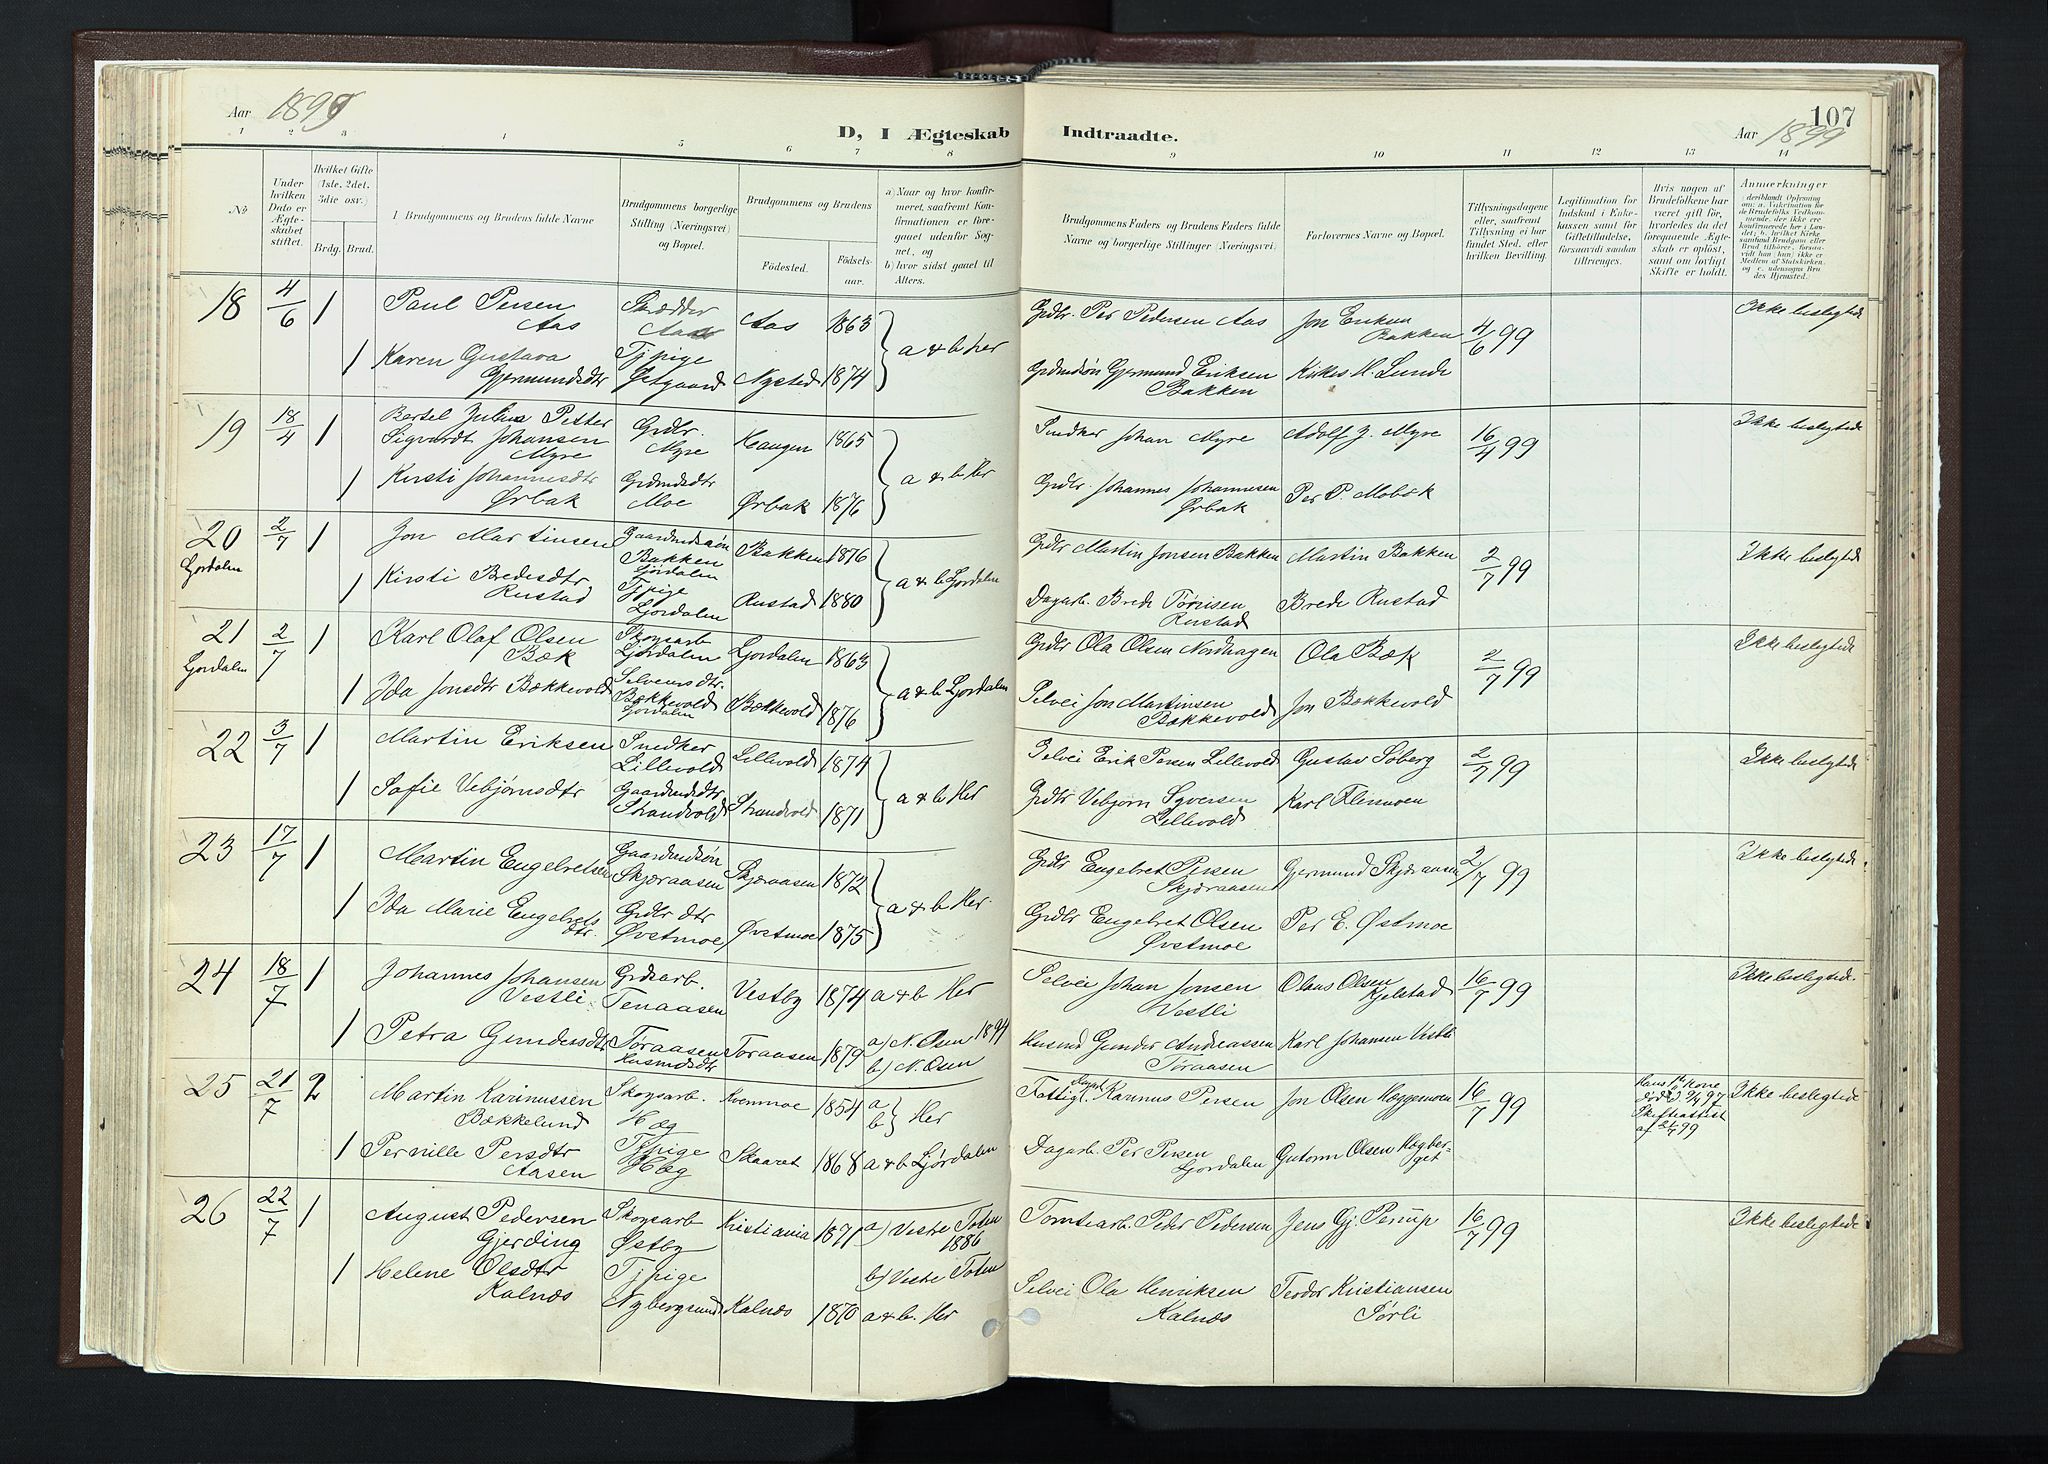 Aar 1899
D, I Ægteskab Indtraadte.
107
Aar 1899
1 2 3 4 5 6 7 8 9 10 11 12 13 14
No
Under hvilken Dato er Ægteskabet stiftet.
Hvilket Gifte (1ste, 2det, 3die osv.)
Brdg. Brud.
Brudgommens og Brudens fulde Navne
Brudgommens borgerlige Stilling (Næringsvei) og Bopæl.
Brudgommens og Brudens
Födested. Födsels-aar.
a) Naar og hvor konfirmeret, saafremt Konfirmationen er foregaaet udenfor Sognet, og
b) hvor sidst gaaet til Alters.
Brudgommens Faders og Brudens Faders fulde Navne og borgerlige Stillinger (Næringsvei)
Forlovernes Navne og Bopæl.
Tillysningsdagene eller, saafremt Tillysning ei har fundet Sted, efter hvilken Bevilling.
Legitimation for Indskud i Enkekassen samt for Giftetilladelse, forsaavidt saadan tiltrænges.
Hvis nogen af Brudefolkene har været gift før, hvorledes da det foregaaende Ægteskab er opløst, samt om lovligt Skifte er holdt.
Anmerkninger
18 4/6 1 Paul Persen Aas Skrædder Aas Aas 1863 a & b her Grdbr. Per Pedersen Aas Jon Eriksen Bakken 4/6 99 Ikke beslegtede
1 Karen Gustava Gjermundsdtr Tjpige Østgaard Nysted 1874 Gjermund Eriksen Bakken Kirkes. H. Lunde
19 18/4 1 Bertel Julius Petter Sigvardt Johansen Myre Grdbr. Myre Haugen 1865 a & b Her Snedker Johan Myre Adolf J. Myre 16/4 99 Ikke beslegtede
1 Kirsti Johannesdtr Ørbak Moe Ørbak 1876 Grdbr. Johannes Johannesen Ørbak Per P. Mobæk
20 Ljørdalen 2/7 1 Jon Martinsen Bakken Ljørdalen Bakken 1876 a & b Ljørdalen Grdbr Martin Jonsen Bakken Martin Bakken 2/7 99 Ikke beslegtede
1 Kirsti Bredesdtr Rustad Tjpige Ljørdalen Rustad 1880 Dagarb. Brede Tørrisen Rustad Brede Rustad
21 Ljørdalen 2/7 1 Karl Olaf Olsen Bæk Skogsarb Ljørdalen Ljørdalen 1863 a & b Ljørdalen Grdbr Ola Olsen Nordhagen Ola Bæk 2/7 99 Ikke beslegtede
1 Ida Jonsdtr Bækkevold Selveiersdtr. Bækkevold Ljørdalen Bækkevold 1876 Selvei Jon Martinsen Bækkevold Jon Bækkevold
22 3/7 1 Martin Eriksen Snedker Lillevold Lillevold 1874 a & b Her Selvei Erik Persen Lillevold Gustav Søberg 2/7 99 Ikke beslegtede
1 Sofie Vebjørnsdtr Strandvold Strandvold 1871 Grdbr Vebjørn Syversen Lillevold Karl Flermoen
23 17/7 1 Martin Engebretsen Skjæraasen Skjæraasen 1872 a & b Her. Grdbr Engebret Persen Skjæraasen Gjermund Skjæraasen 2/7 99 Ikke beslegtede
1 Ida Marie Engebretsdtr. Grdbr dtr Øvstmoe Øvstmoe 1875 Grdbr Engebret Olsen Øvstmoe Per E. Østmoe
24 18/7 1 Johannes Johansen Vestli Grdsarb. Tenaasen Vestby 1874 a & b Her Selvei Johan Jonsen Vestli Olaus Olsen Kjelstad 16/7 99 Ikke beslegtede.
1 Petra Gundersdtr Toraasen Husmdsdtr Toraasen 1879 a) N. Osen 1894 b) N. Osen Husmd Gunder Andreassen Tøraasen Karl Johansen Vestli
25 21/7 2 Martin Karinussen Bækkelund Skogsarb. Hæg Kvenmoe 1854 a b Her Karinus Persen Jon Olsen Hoggemoen 16/7 99 Hans 1ste Kone død Skifteattest af 99 Ikke beslegtede
1 Pernille Persdtr Aasen Tjpige Hæg Skaaret 1868 a & b Ljørdalen Dagarb. Per Persen Ljørdalen Gutorm Olsen Hægberget
26 22/7 1 August Pedersen Gjerding Skogsarb Østby Kristiania 1871 a) Vestre Toten 1886 b) Vestre Toten Tomtearb. Peder Pedersen Jens Gj. Perup 16/7 99 Ikke beslegtede
1 Helene Olsdtr Kalnæs Tjpige Nybergsund Kalnæs 1870 a & b. Her Selvei Ola Henriksen Kalnæs Teodor Kristiansen Sørli